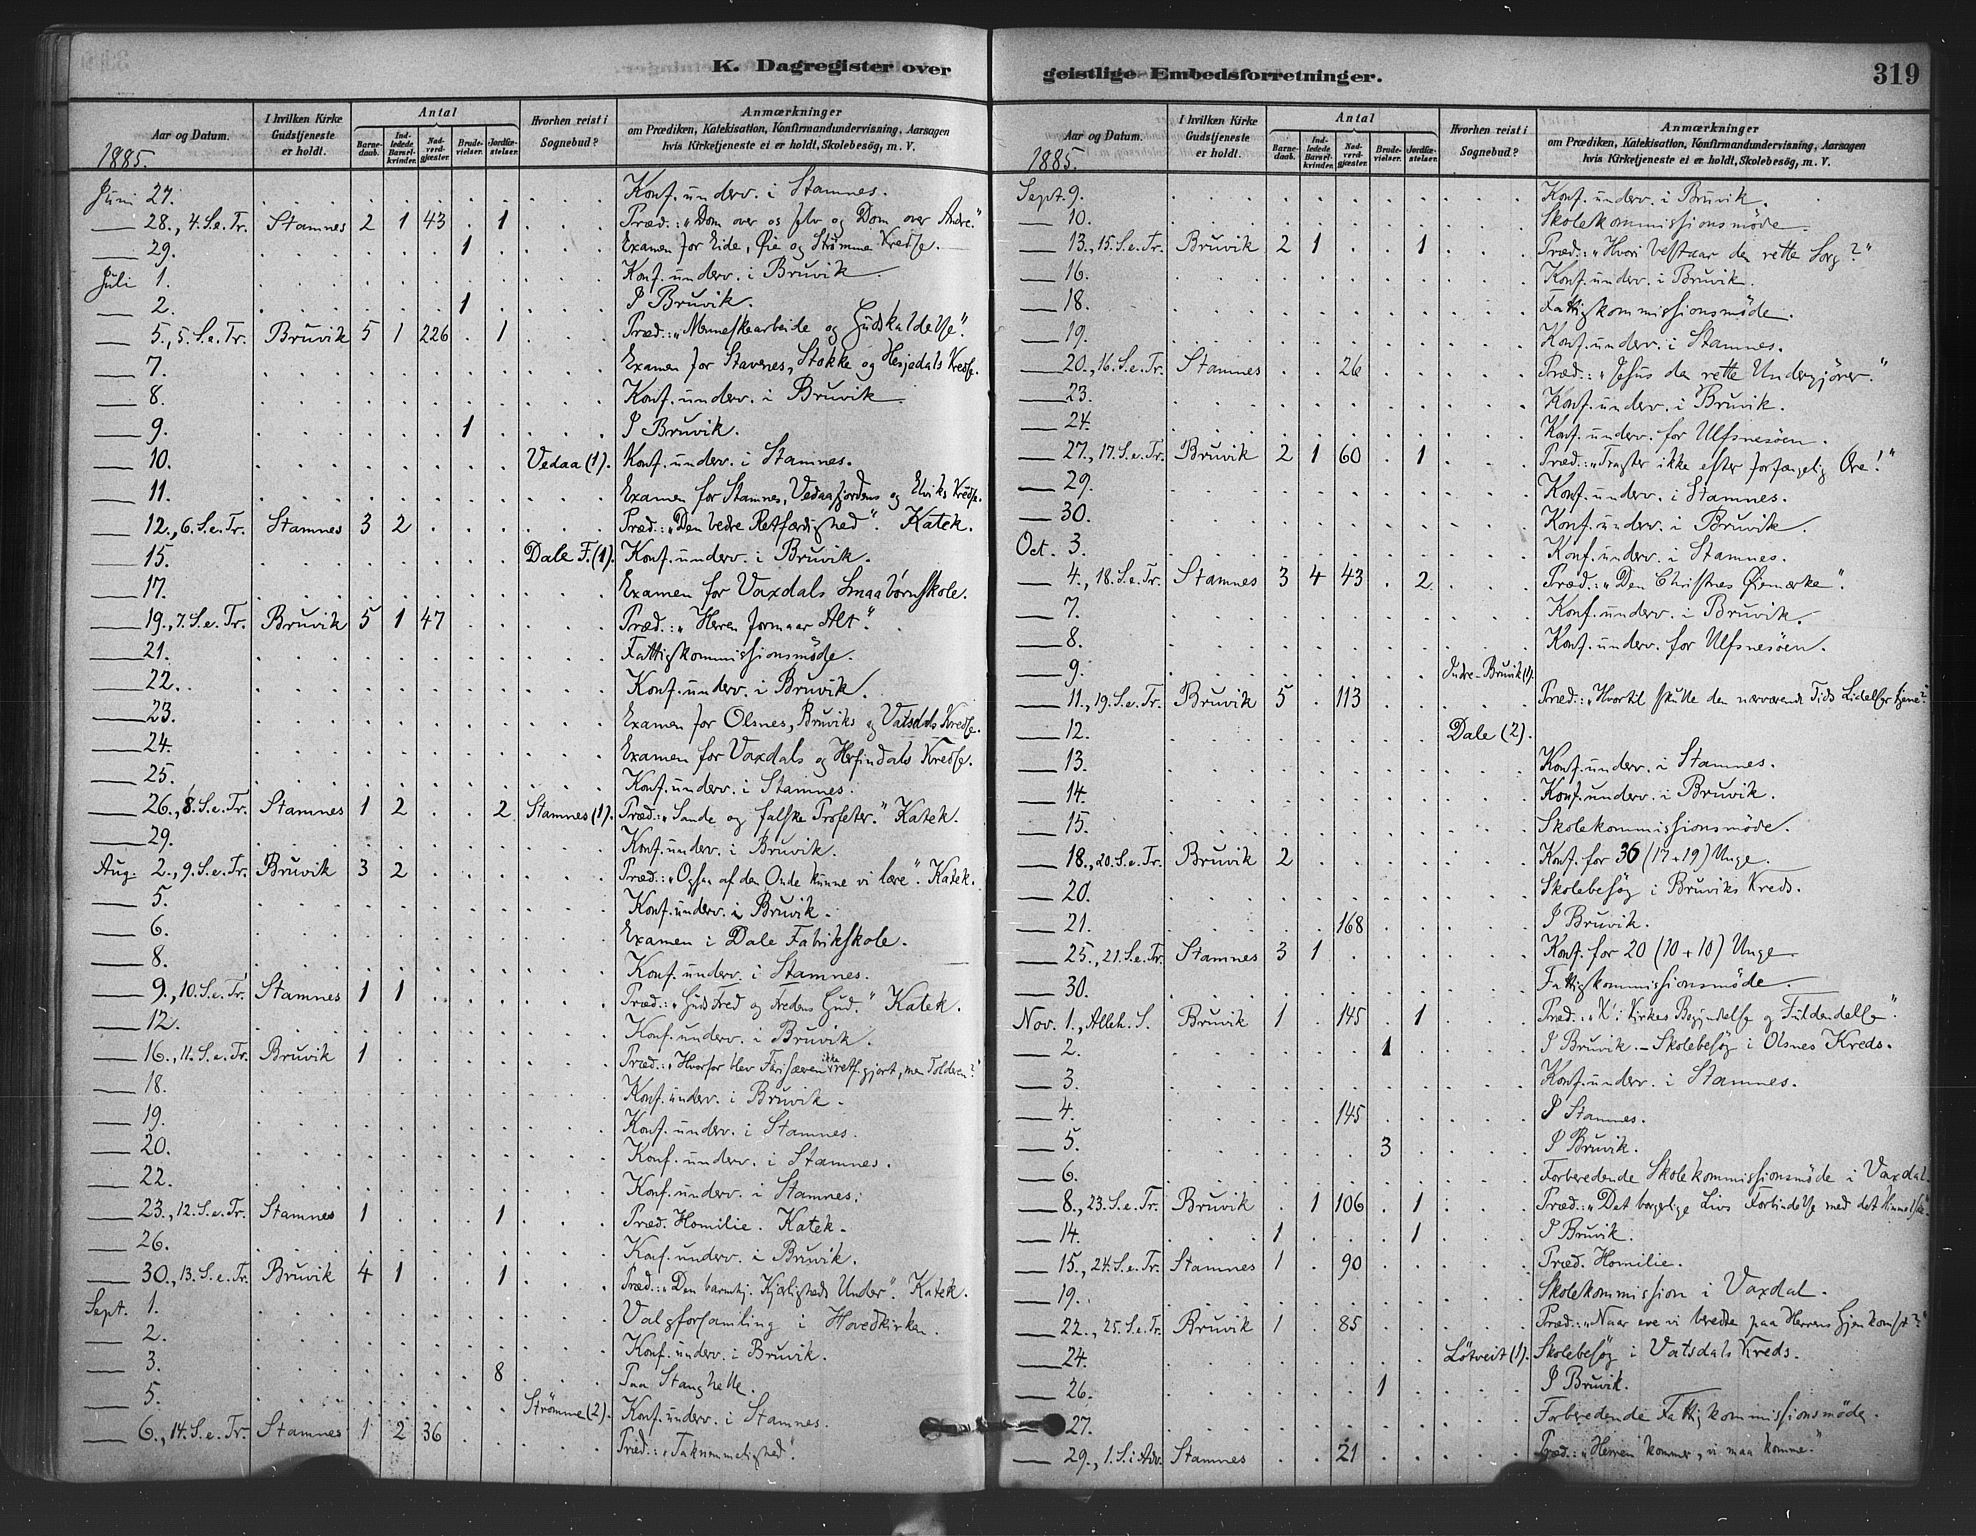 K. Dagregister over
Aar og Datum.
I hvilken Kirke Gudstjeneste er holdt.
Antal
Barnedaab.
Indledede Barselkvinder.
Nadverdgjæster.
Brudevielser.
Jordfæstelser.
Hvorhen reist i Sognebud?
Anmærkninger
om Prædiken, Katekisation, Konfirmandundervisning, Aarsagen
hvis Kirketjeneste ei er holdt, Skolebesøg, m. V.
1885.
Juni 27. Konf. underv. i Stamnes.
28., 4. S. e. Tr. Stamnes 2 1 43 . 1 Præd.: „Dom over os selv og Dom over Andre“
29. 1 Examen for Eide, Øie og Strømme Kredse.
Juli 1. Konf. underv. i Bruvik.
2. 1 I Bruvik.
5., 5. S. e. Tr. Bruvik 5 1 226 . 1 Præd.: „Menneskearbeide og Gudskaldelse“.
7. Examen for Stavenes, Stokke og Hesjedals Kredse.
8. Konf. underv. i Bruvik
9. 1 I Bruvik.
10. Vedaa (1). Konf. underv. i Stamnes.
11. Examen for Stamnes, Vedaafjordens og Elviks Kredse.
12., 6. S. e. Tr. Stamnes 3 2 Præd.: „Den bedre Retfærdighed“. Katek.
15. Dale F. (1). Konf. underv. i Bruvik.
17. Examen for Vaxdals Smaabørnskole.
19., 7. S. e. Tr. Bruvik 5 1 47 Præd.: „Herren formaar Alt“.
21. Fattigkommissionsmøde.
22. Konf. underv. i Bruvik.
23. Examen for Olsnes, Bruviks og Vatsdals Kredse.
24. Examen for Vaxdals og Herfindals Kredse.
25. Konf. underv. i Stamnes.
26., 8. S. e. Tr. Stamnes 1 2 . . 2 Stamnes (1). Præd.: „Sande og falske Profeter.“ Katek.
29. Konf. underv. i Bruvik.
Aug. 2., 9. S. e. Tr. Bruvik 3 2 Præd.: „Ogsaa af den Onde kunne vi lære“. Katek.
5. Konf. underv. i Bruvik.
6. Examen i Dale Fabrikskole.
8. Konf. underv. i Stamnes.
9., 10. S. e. Tr. Stamnes 1 1 Præd.: „Guds Fred og Fredens Gud.“ Katek.
12. Konf. underv. i Bruvik.
16., 11. S. e. Tr. Bruvik 1 Præd.: „Hvorfor blev Farisæeren ikke retf.gjort, men Tolderen?“
18. Konf. underv. i Bruvik.
19. Konf. underv. i Stamnes.
20. Konf. underv. i Stamnes.
22. Konf. underv. i Stamnes.
23., 12. S. e. Tr. Stamnes 1 . . . 1 Præd. Homilie. Katek.
26. Konf. underv. i Bruvik.
30., 13. S. e. Tr. Bruvik 4 1 . . 1 Præd.: „Den barmhj. Kjærligheds Under“. Katek.
Sept. 1. Valgforsamling i Hovedkirken.
2. Konf. underv. i Bruvik.
3. 8 Paa Stanghelle.
5. Strømme (2). Konf. underv. i Stamnes.
6., 14. S. e. Tr. Stamnes 1 2 36 Præd.: „Taknemmelighed“.
geistlige Embedsforretninger.
319
Aar og Datum.
I hvilken Kirke Gudstjeneste er holdt.
Antal
Barnedaab.
Indledede Barselkvinder.
Nadverdgjæster.
Brudevielser.
Jordfæstelser.
Hvorhen reist i Sognebud?
Anmærkninger
om Prædiken, Katekisation, Konfirmandundervisning, Aarsagen
hvis Kirketjeneste ei er holdt, Skolebesøg, m. V.
1885.
Sept. 9. Konf. underv. i Bruvik.
10. Skolekommissionsmøde.
13., 15. S. e. Tr. Bruvik 2 1 . . 1 Præd.: „Hvori bestaar den rette Sorg?“
16. Konf. underv. i Bruvik.
18. Fattigkommissionsmøde.
19. Konf. underv. i Stamnes.
20., 16. S. e. Tr. Stamnes . . 26 Præd.: „Jesus den rette Undergjører.“
23. Konf. underv. i Bruvik.
24. Konf. underv. for Ulfsnesøen.
27., 17. S. e. Tr. Bruvik 2 1 60 . 1 Præd.: „Tragter ikke efter forfængelig Ære!“
29. Konf. underv. i Stamnes.
30. Konf. underv. i Bruvik.
Oct. 3. Konf. underv. i Stamnes.
4., 18. S. e. Tr. Stamnes 3 4 43 . 2 Præd.: „Den Christnes Øiemærke“.
7. Konf. underv. i Bruvik.
8. Konf. underv. for Ulfsnesøen.
9. Indre-Bruvik (1).
11., 19. S. e. Tr. Bruvik 5 . 113 Præd.: „Hvortil skulle den nærværende Tids Lidelser tjene?“
12. Dale (2).
13. Konf. underv. i Stamnes.
14. Konf. underv. i Bruvik.
15. Skolekommissionsmøde.
18., 20. S. e. Tr. Bruvik 2 Konf. for 36 (17+19) Unge.
20. Skolebesøg i Bruviks Kreds.
21. 168 I Bruvik.
25., 21. S. e. Tr. Stamnes 3 1 Konf. for 20 (10+10) Unge
30. Fattigkommissionsmøde.
Nov. 1., Alleh. S. Bruvik 1 . 145 . 1 Præd.: Kirkes Begyndelse og Fuldendelse“.
2. 1 I Bruvik. – Skolebesøg i Olsnes Kreds.
3. Konf. underv. i Stamnes.
4. 145 I Stamnes.
5. 3 I Bruvik.
6. Forberedende Skolekommissionsmøde i Vaxdal.
8., 23. S. e. Tr. Bruvik . 1 106 . 1 Præd.: „Det borgerlige Livs Forbindelse med det himmelske“
14. 1 . . . 1 I Bruvik.
15., 24. S. e. Tr. Stamnes 1 . 90 Præd. Homilie.
19. Skolekommission i Vaxdal.
22., 25. S. e. Tr. Bruvik 1 . 85 Præd.: „Naar ere vi beredte paa Herrens Gjenkomst?“
24. Løtveit (1). Skolebesøg i Vatsdals Kreds.
26. 1 I Bruvik.
27. Forberedende Fattigkommissionsmøde.
29., 1. S. i Adv. Stamnes . . 21 Præd.: „Herren kommer, vi maa komme.“